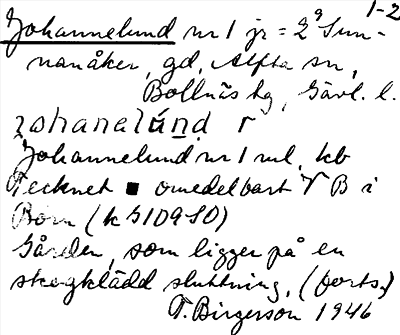 1-2
Johannelund nr 1 jr = 2⁹ Sun-
nanåker, gd, Alfta sn,
Bollnäs hg, Gävl. l.
Johannelund nr 1 ml, kb
Tecknet ■ omedelbart V B i
Born (k G 109 SO)
Gården, som ligger på en
skogklädd sluttning, (forts.)
T. Birgerson 1946